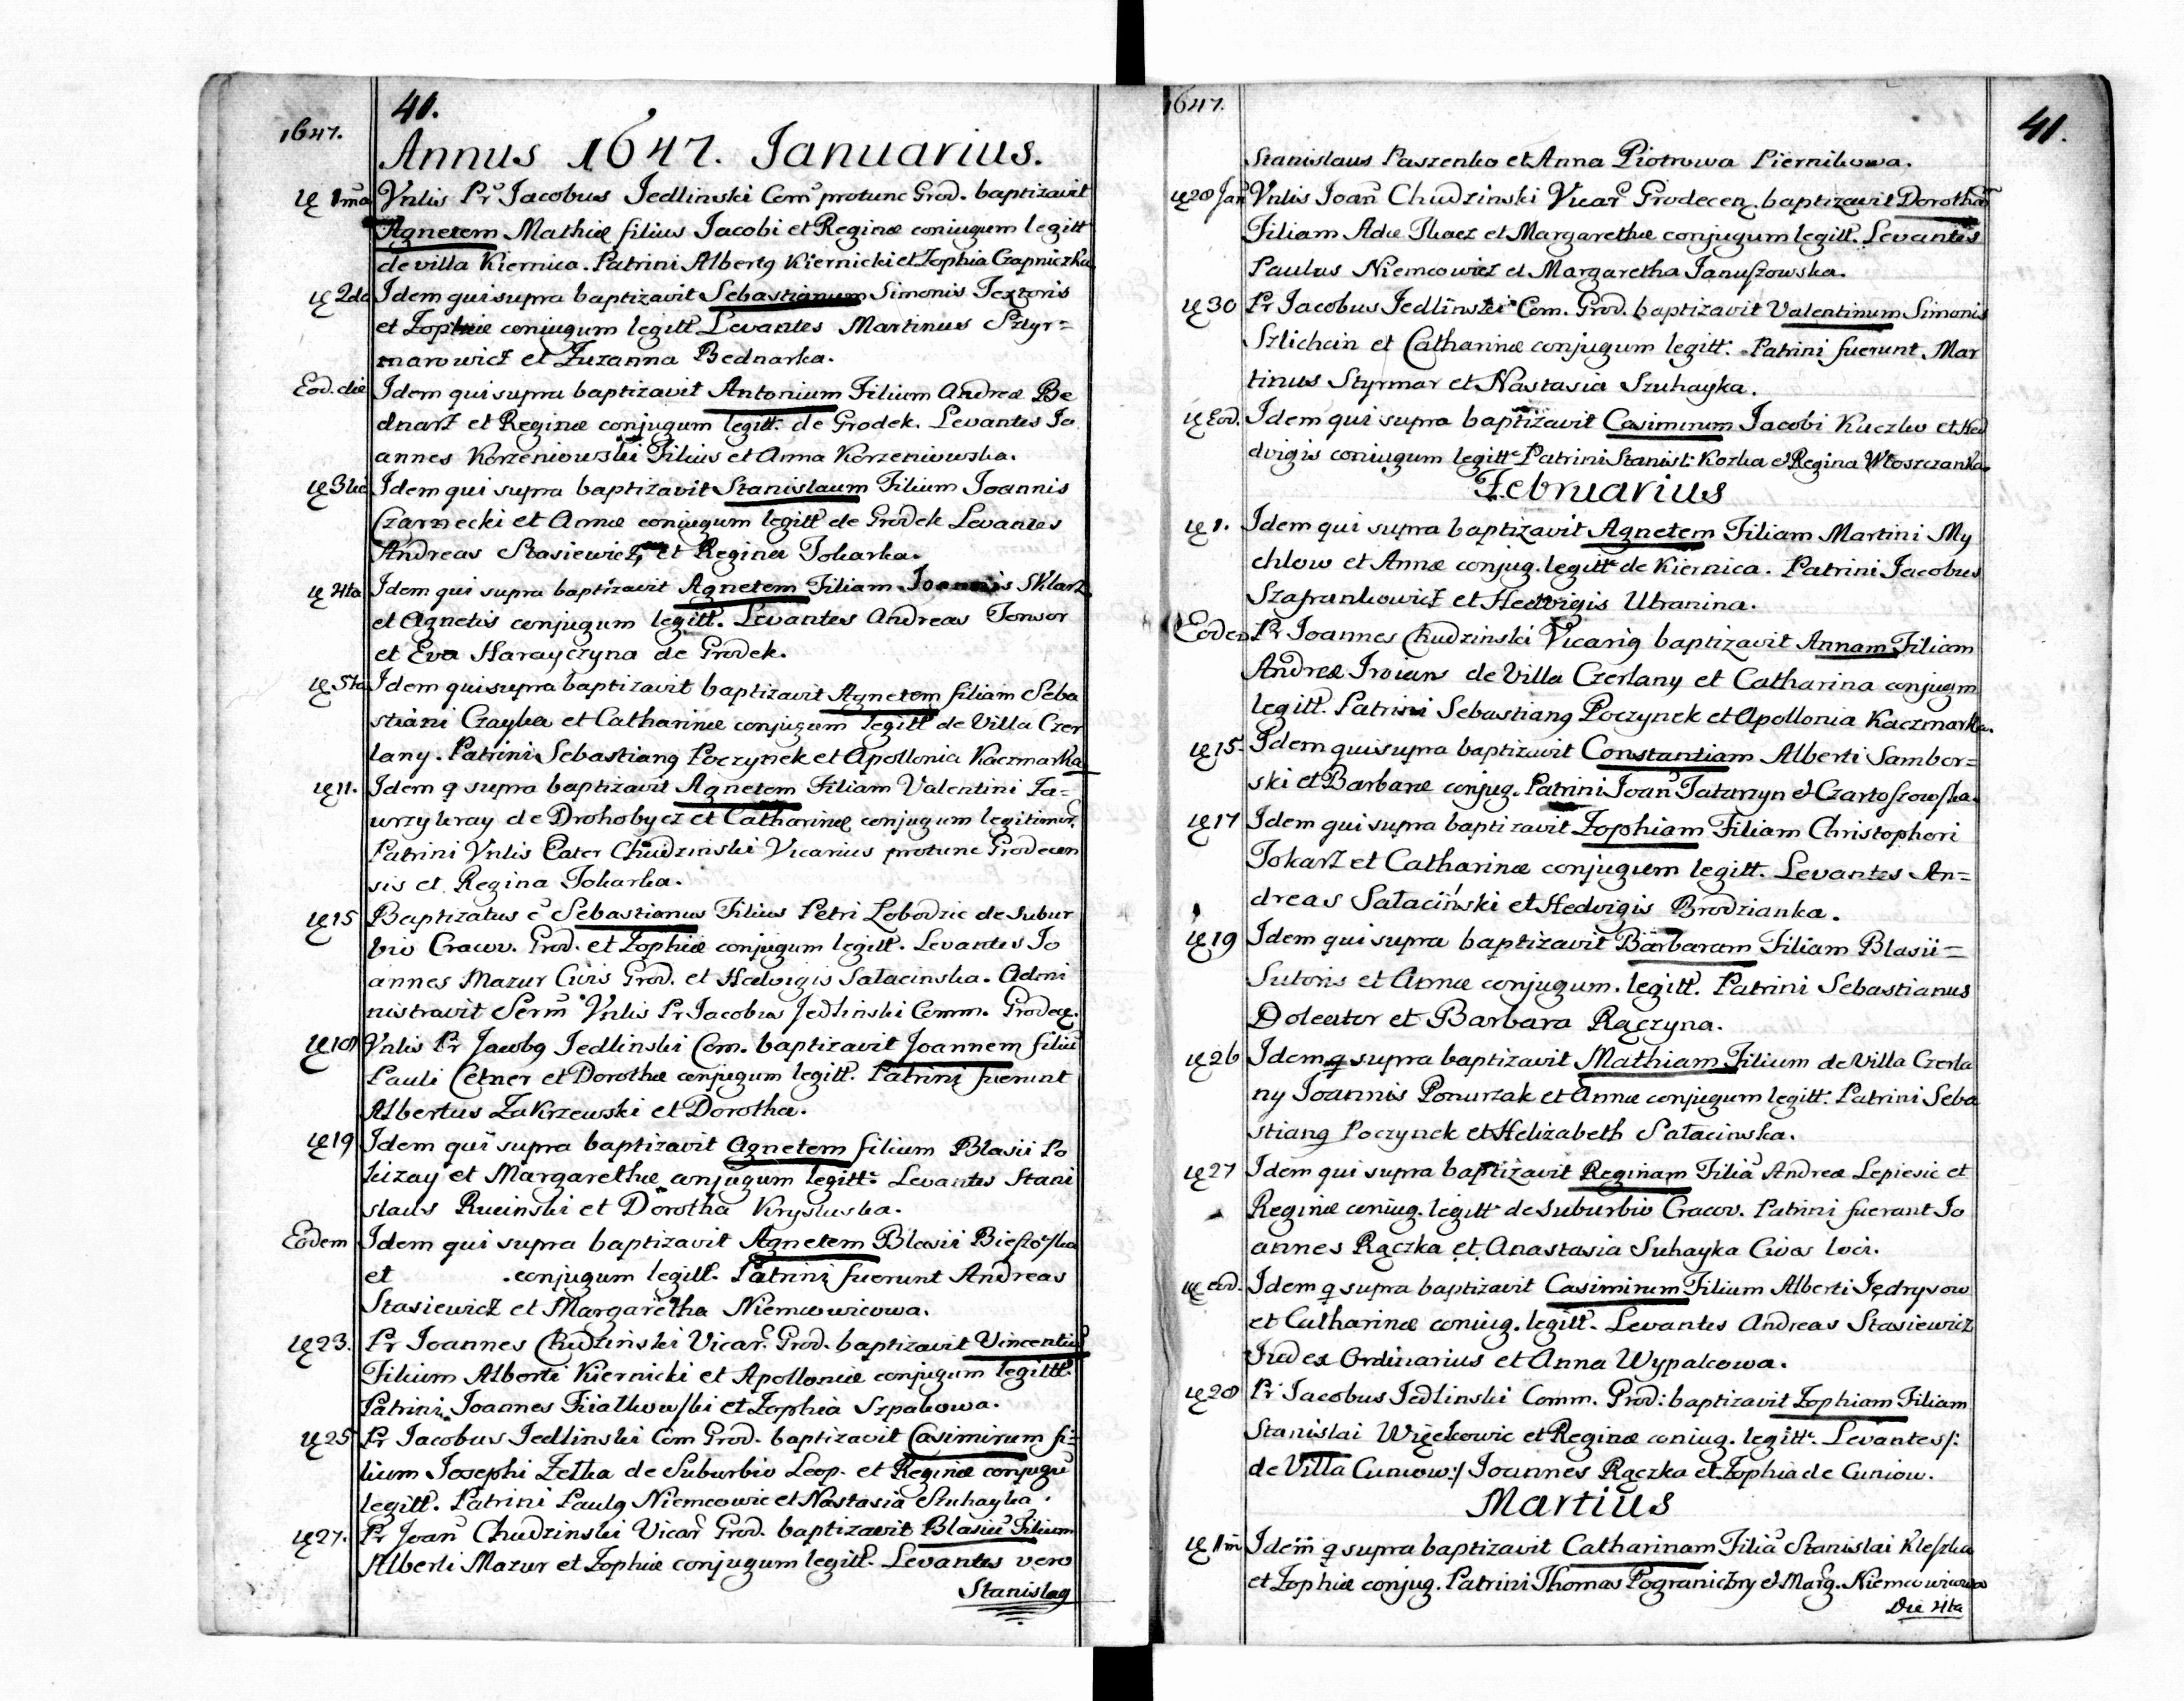 1647.
41.
Annus 1647. Januarius.
1ma Vnlis Pr Jacobus Jedlinski Com protunc Grod. baptizavit
Agnetem Mathiæ filius Jacobi et Reginæ coniugum legitt
de villa Kiernica. Patrini Albertg Kiernicki et Zophia Czapniczka
2da Idem qui supra baptizavit Sebastianum Simonis Textoris
et Zophiæ coniugum legitt. Levantes Martinus Sztyr=
marowicz et Zuzanna Bednarka.
Eod. die Idem qui supra baptizavit Antonium Filium Andreæ Be
dnarz et Reginæ conjugum legitt. de Grodek. Levantes Jo
annes Korzeniowski Filius et Anna Korzeniowska.
Idem qui supra baptizavit Stanislaum Filium Joannis
Czarnecki et Annæ conjugum legitt de Grodek Levantes
Andreas Stasiewicz, et Regina Tokarka.
4ta Idem qui supra baptizavit Agnetem Filiam Joannis Sklarz
et Agnetis conjugum legitt. Levantes Andreas Tonsor
et Eva Harayczyna de Grodek.
5ta Idem qui supra baptizavit baptizavit Agnetem filiam Seba
stiani Czayka et Catharinæ conjugum legitt de Villa Czer
lany. Patrini Sebastiang Poczynek et Apollonia Kaczmarka
11. Idem q supra baptizavit Agnetem Filiam Valentini Za=
wrzykray de Drohobycz et Catharinæ conjugum legitimor.
Patrini Vnlis Pater Chudzinski Vicarius protunc Grodecen
sis et Regina Tokarka.
15 Baptizatus e Sebastianus Filius Petri Lobodzic de subur
bio Cracov. Grod. et Zophiæ conjugum legitt. Levantes Jo
annes Mazur Civis Grod. et Hedvigis Salacinska. Admi
nistravit Serm Vnlis Pr Jacobus Jedlinski Comm. Grodec.
18 Vnlis Pr Jacobg Jedlinski Com. baptizavit Joannem filiu
Pauli Cetner et Dorotheæ conjugum legitt. Patrini fuerunt
Albertus Zakrzewski et Dorotha.
19 Idem qui supra baptizavit Agnetem filium Blasii Po
kizay et Margarethæ conjugum legitt. Levantes Stani
slaus Rucinski et Dorotha Kryskuska.
Eodem Idem qui supra baptizavit Agnetem Blasii
et .conjugum legitt. Patrini fuerunt Andreas
Stasiewicz et Margaretha Niemcowicowa.
23. Pr Joannes Chudzinski Vicar. Grod. baptizavit Vincentiu
Filium Alberti Kiernicki et Apolloniæ conjugum legittt.
Patrini Joannes Fiałkowski et Zophia Szpakowa.
25 Pr Jacobus Jedlinski Com Grod. baptizavit Casimirum fi=
lium Josephi Zelka de Suburbio Leop. et Reginæ conjugu
legitt. Patrini Paulg Niemcowic et Nastasia Szuhayka.
27. Pr Joan Chudzinski Vicar Grod. baptizavit Blasiu Filium
Alberti Mazur et Zophiæ conjugum legitt. Levantes vero
Stanislag
1647.
41.
Stanislaus Paszenko et Anna Piotrowa Piernikowa.
28 Jan Vnlis Joan Chudzinski Vicar Grodecen. baptizavit Dorotha
Filiam Adæ Tkacz et Margarethæ conjugum legitt. Levantes
Paulus Niemcowicz et Margaretha Januszowska.
30 Pr Jacobus Jedlinski Com. Grod. baptizavit Valentinum Simonis
Szlichcin et Catharinæ conjugum legitt. Patrini fuerunt Mar
tinus Styrmar et Nastasia Szuhayka.
Eod. Idem qui supra baptizavit Casimirum Jacobi Kuczko et Hed
dvigis coniugum legitt Patrini Stanisl: Kozka et Regina Włoszczanka
Februarius
1. Idem qui supra baptizavit Agnetem Filiam Martini My
chlow et Annæ conjug. legitt de Kiernica. Patrini Jacobus
Szafrankowicz et Hedvigis Utranina.
Eodem Pr Joannes Chudzinski Vicarig baptizavit Annam Filiam
Andreæ Troian de Villa Czerlany et Catharina conjugm
legitt. Patrini Sebastiang Poczynek et Apollonia Kaczmarka.
15. Idem qui supra baptizavit Constantiam Alberti Sambor=
ski et Barbaræ conjug. Patrini Joan Tatarzyn et Czartoszowska.
17 Idem qui supra baptizavit Zophiam Filiam Christophori
Tokarz et Catharinæ conjugum legitt. Levantes An=
dreas Sałaciński et Hedvigis Brodzianka.
19 Idem qui supra baptizavit Barbaram Filiam Blasii=
Sutoris et Annæ conjugum. legitt. Patrini Sebastianus
Doleator et Barbara Rączyna.
26 Idem q supra baptizavit Mathiam Filium de Villa Czerla
ny Joannis Ponurzak et Annæ conjugum legitt. Patrini Seba
stiang Poczynek et Helizabeth Sałacinska.
27 Idem qui supra baptizavit Reginam Filia Andreæ Lepiesic et
Reginæ coniug. legitt de suburbio Cracov. Patrini fuerant Jo
annes Rączka et Anastasia Suhayka Cives loci.
eod. Idem q supra baptizavit Casimirum Filium Alberti Jędrysow
et Catharinæ coniug. legitt. Levantes Andreas Stasiewicz
Judex Ordinarius et Anna Wypalcowa.
28 Pr Jacobus Jedlinski Comm. Grod: baptizavit Zophiam Filiam
Stanislai Więckowic et Reginæ coniug. legitt. Levantes/:
de Villa Cuniow:/ Joannes Rączka et Zophia de Cuniow.
Martius
1m Idem q supra baptizavit Catharinam Filia Stanislai Kleszka
et Zophiæ conjug. Patrini Thomas Pograniczny et Marg. Niemcowicowa
Die 4ta